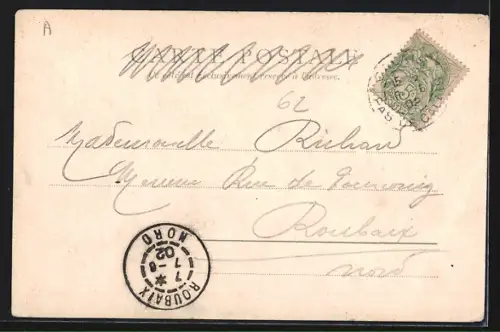 A
CARTE POSTALE
Ce côté est exclusivement réservé à l'adresse.
62
Mademoiselle Richard
Rue de
Roubaix
Nord
ROUBAIX
7-8
7
02
NORD